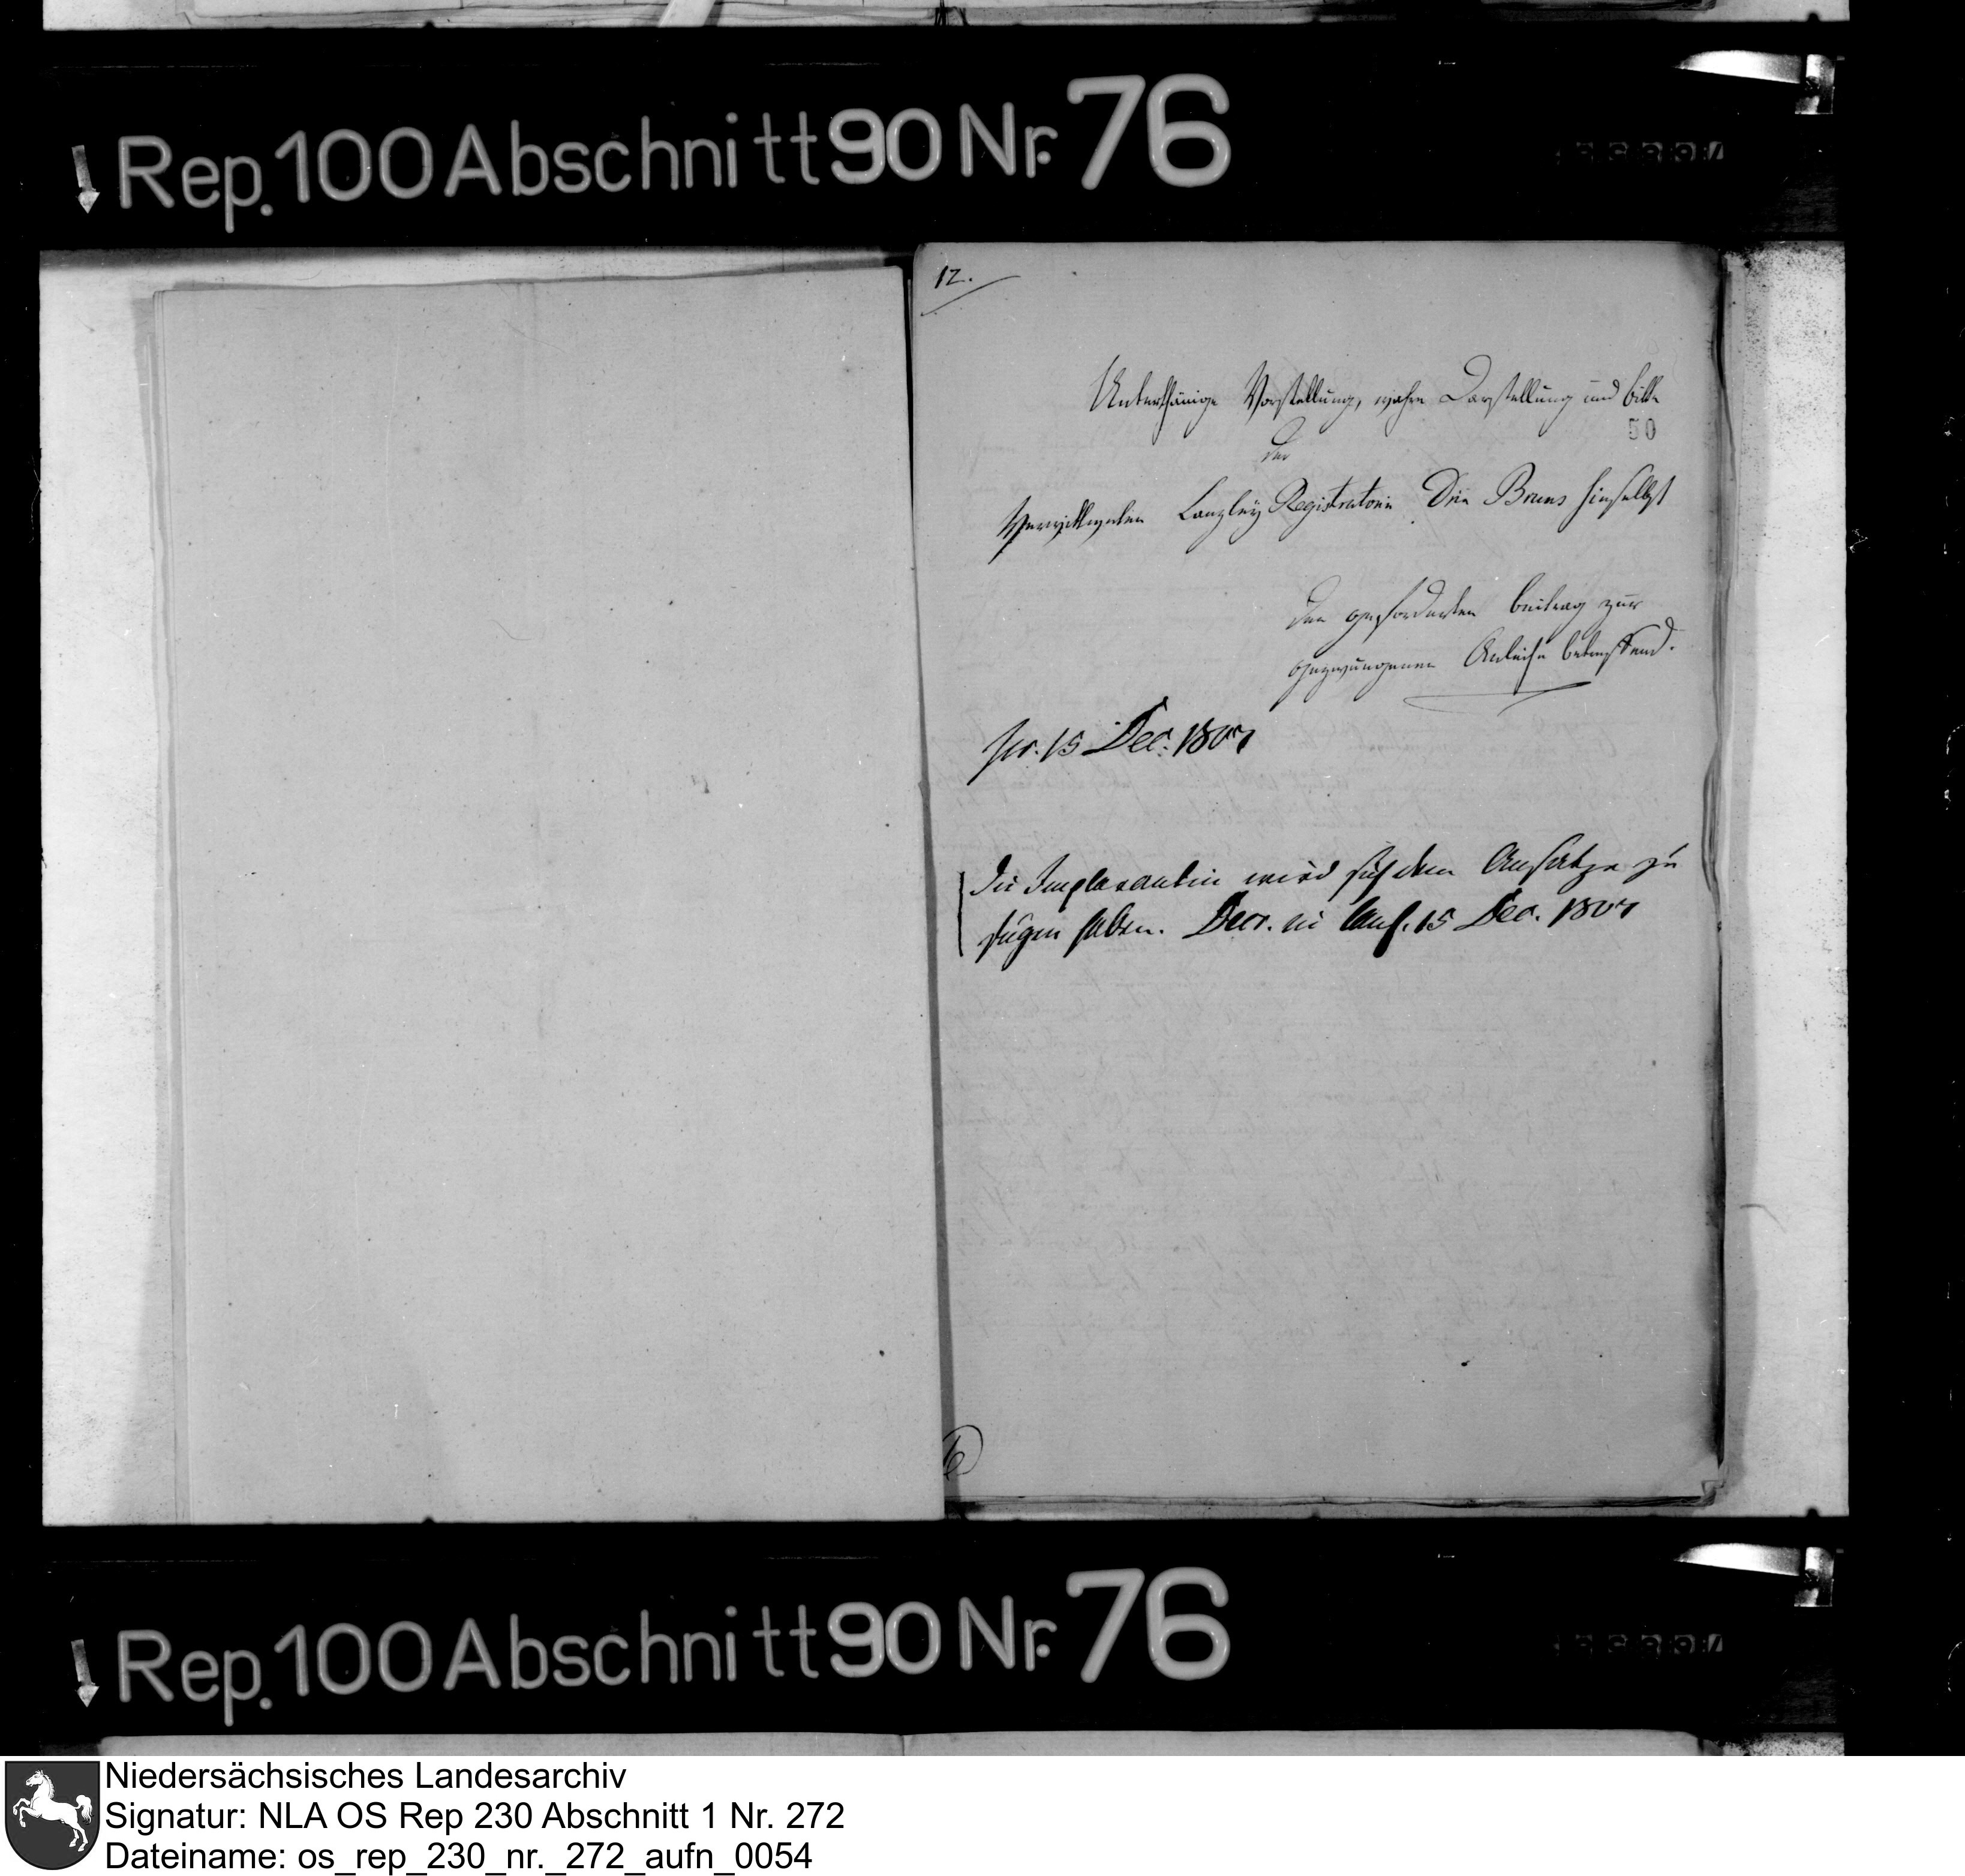 Rep. 100 Abschnitt 90 Nr. 76
12.
Unterthänige Vorstellung, wahre Darstellung und bitte
50
der
Verwittweten Canzley Registratorin Drin Bruns hieselbst
den geforderten beitrag zur
gezwungenen Anleihe betreffend.
pr. 15 Dec. 1807
die Implorantin wird sich dem Ansatze zu
fügen haben. Decr. in Conf. 15 Dec. 1807
Rep. 100 Abschnitt 90 Nr. 76
Niedersächsisches Landesarchiv
Signatur: NLA OS Rep 230 Abschnitt 1 Nr. 272
Dateiname: os_rep_230_nr._272_aufn_0054